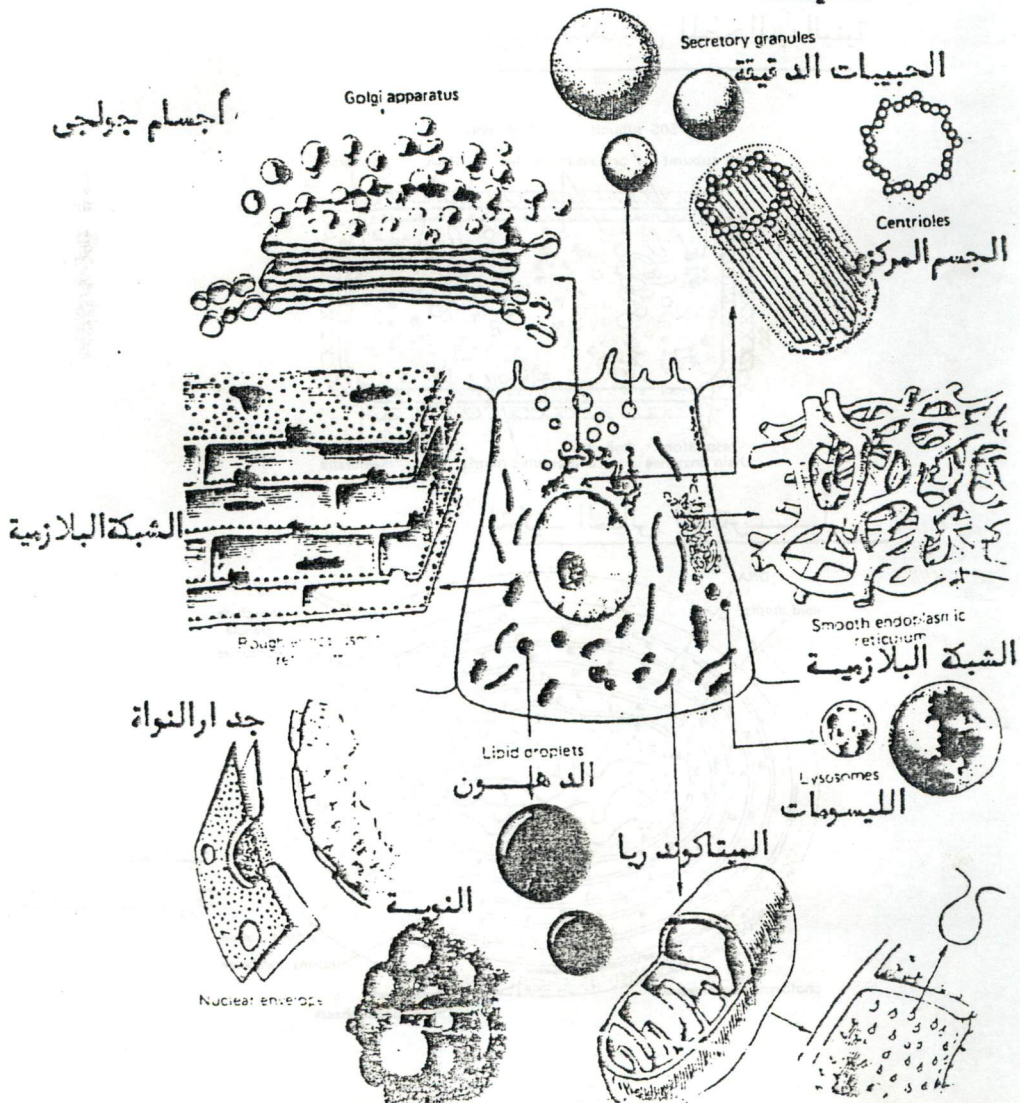 Secretory granules
الحبيبات الدقيقة
Golgi apparatus
أجسام جولجى
Centrioles
الجسم المركزى
الشبكة البلازمية
Rough
Smooth endoplasmic
reticulum
الشبكة البلازميـة
جدار النواة
Lipid droplets
الدهــون
Lysosomes
الليسومات
الميتاكوندريا
النويــة
Nuclear envelope